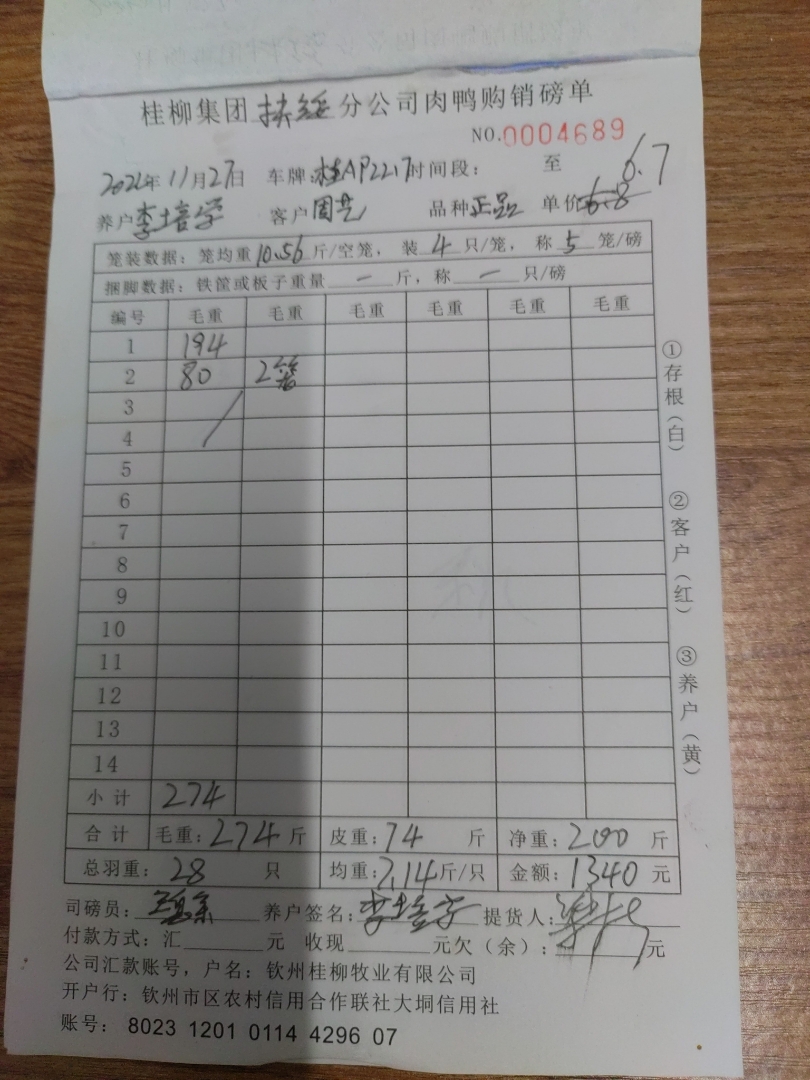 桂柳集团扶绥分公司肉鸭购销磅单
NO.0004689
2022年11月27日 车牌:桂AP2217时间段: 至
6.7
养户李培学 客户周艺 品种正品 单价6.8
笼装数据:笼均重10.56斤/空笼,装4只/笼,称5笼/磅
捆脚数据:铁筐或板子重量一斤,称一只/磅
编号 毛重 毛重 毛重 毛重 毛重 毛重
1 194
2 80 2笼
3
4
5
6
7
8
9
10
11
12
13
14
小计 274
合计 毛重:274斤 皮重:74斤 净重:200斤
总羽重:28只 均重:7.14斤/只 金额:1340元
①存根(白)
②客户(红)
③养户(黄)
司磅员: 养户签名:李培学 提货人:
付款方式:汇 元 收现 元欠(余): 元
公司汇款账号,户名:钦州桂柳牧业有限公司
开户行:钦州市区农村信用合作联社大垌信用社
账号: 8023 1201 0114 4296 07